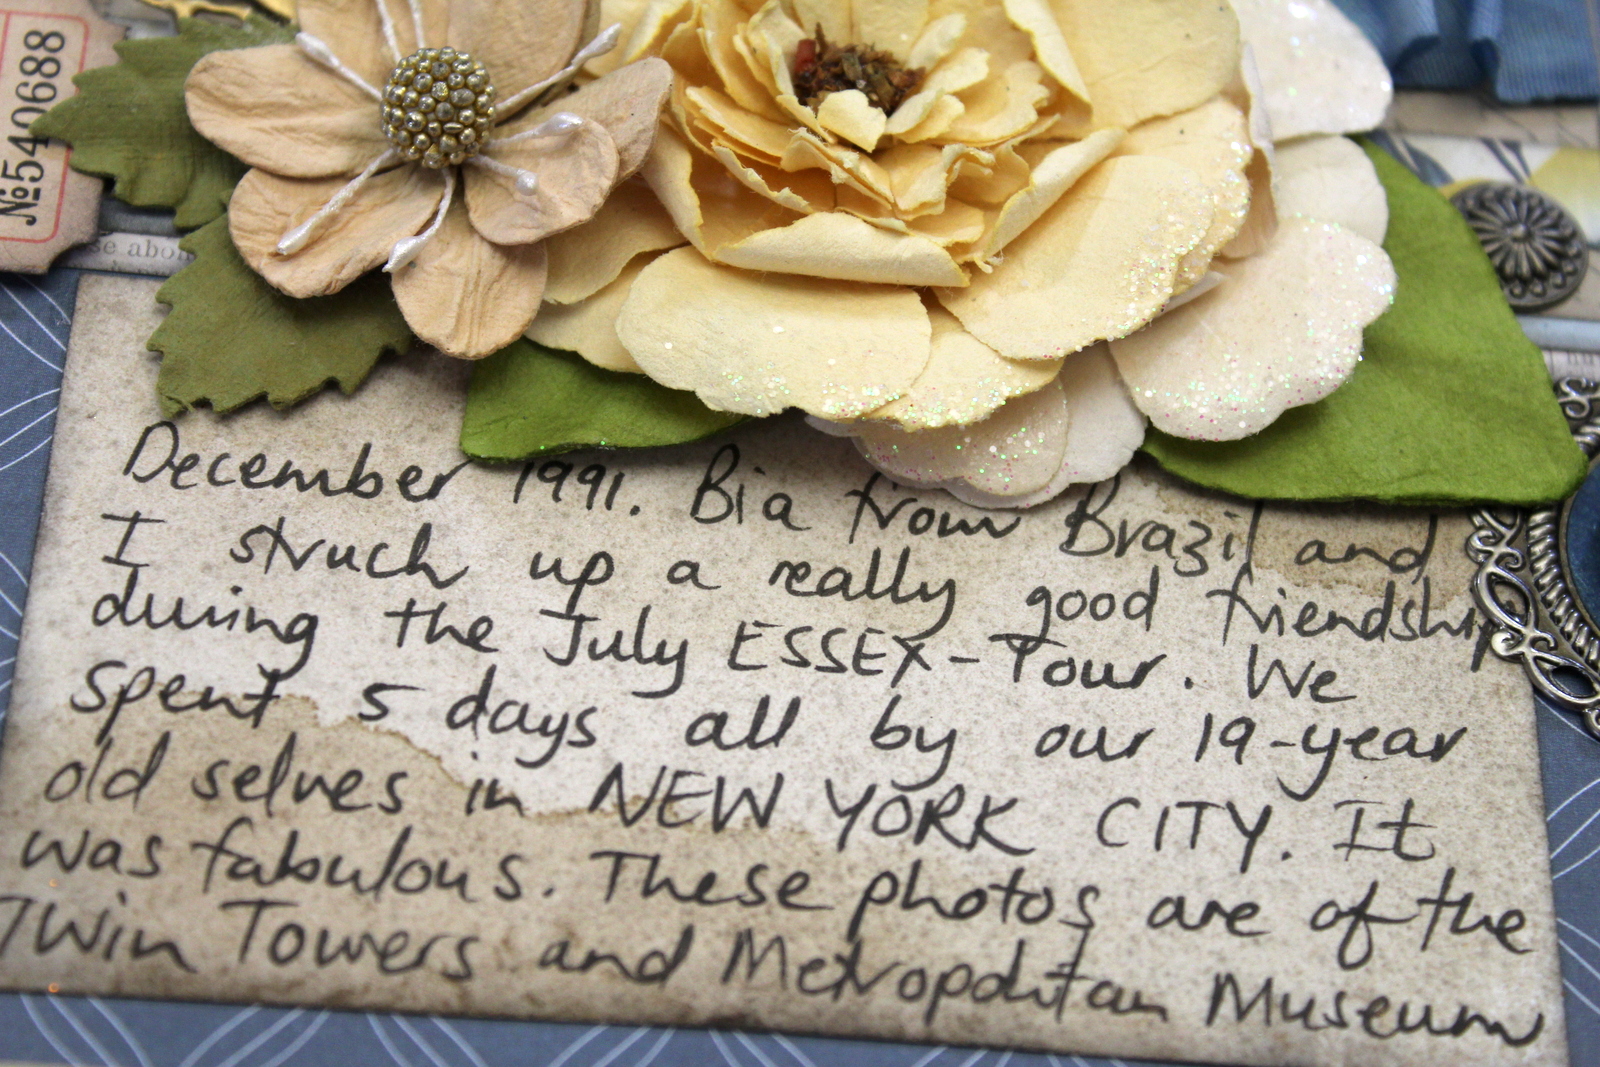 №540688
se abou
December 1991. Bia from Brazil and
I struck up a really good friendship
during the July ESSEX-Tour. We
spent 5 days all by our 19-year
old selves in NEW YORK CITY. It
was fabulous. These photos are of the
Twin Towers and Metropolitan Museum